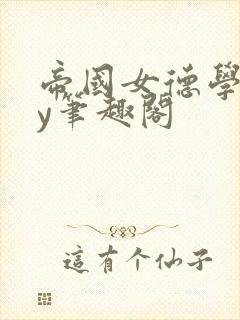 帝國女德學
y筆趣閣
這有个仙子